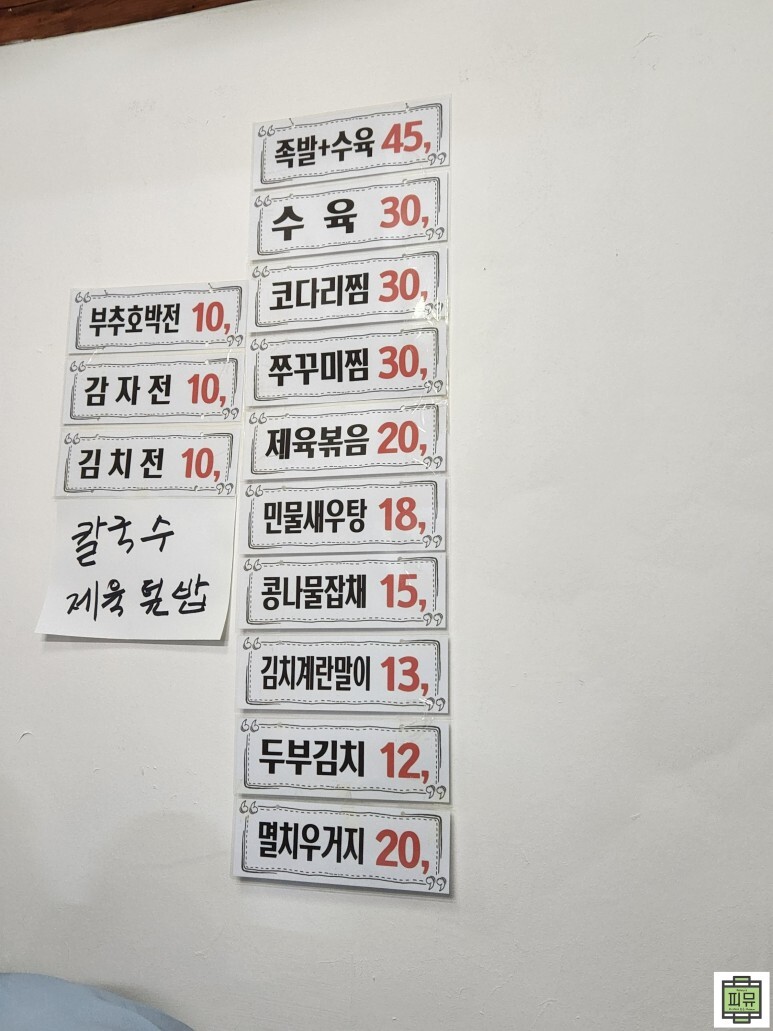 족발+수육 45,
수육 30,
코다리찜 30,
쭈꾸미찜 30,
제육볶음 20,
민물새우탕 18,
콩나물잡채 15,
김치계란말이 13,
두부김치 12,
멸치우거지 20,
부추호박전 10,
감자전 10,
김치전 10,
칼국수
제육덮밥
피뮤